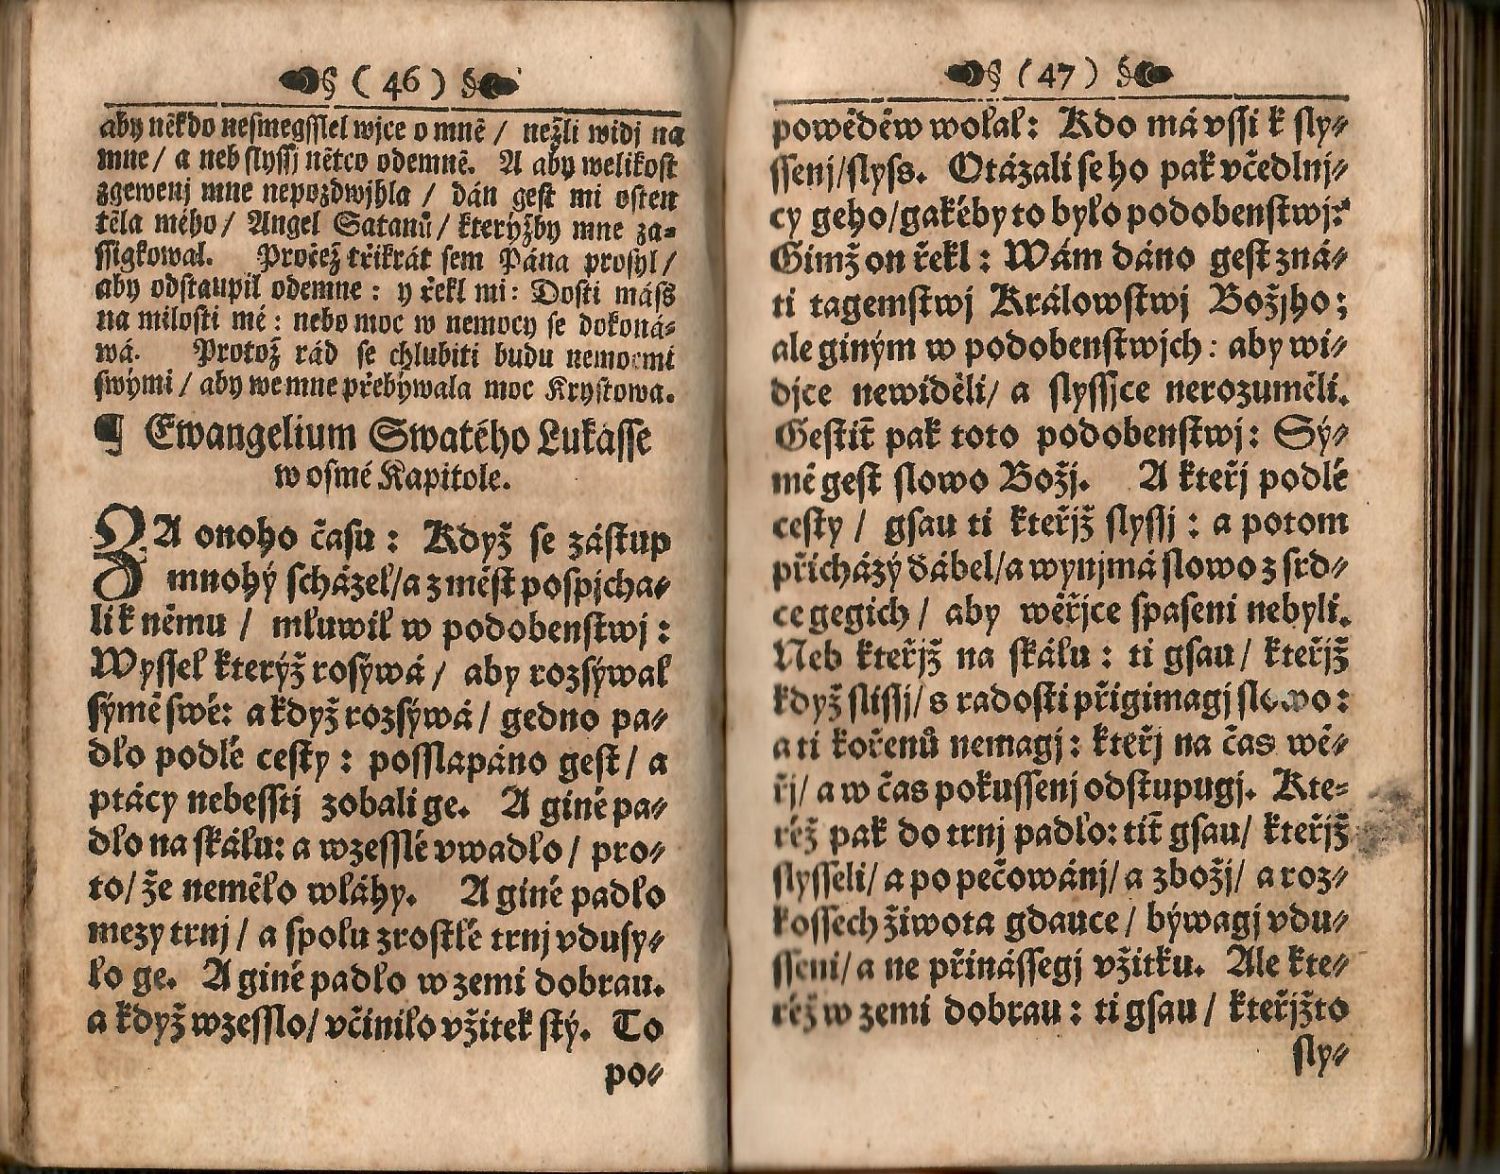 § ( 46 ) §
aby někdo nesmegsslel wjce o mně / nežli widj na
mne / a neb slyssj nětco odemně. A aby welikost
zgewenj mne nepozdwjhla / dán gest mi osten
těla mého / Angel Satanů / kterýžby mne za-
ssigkowal. Pročež třikrát sem Pána prosyl /
aby odstaupil odemne : y řekl mi : Dosti máss
na milosti mé : nebo moc w nemocy se dokoná-
wá. Protož rád se chlubiti budu nemocmi
swými / aby we mne přebýwala moc Krystowa.
¶ Ewangelium Swatého Lukásse
w osmé Kapitole.
ZA onoho času : Když se zástup
mnohý scházel / a z měst pospjcha-
li k němu / mluwil w podobenstwj :
Wyssel kterýž rosýwá / aby rozsýwal
sýmě swé : a když rozsýwá / gedno pa-
dlo podlé cesty : posslapáno gest / a
ptácy nebesstj zobali ge. A giné pa-
dlo na skálu : a wzesslé vwadlo / pro-
to / že nemělo wláhy. A giné padlo
mezy trnj / a spolu zrostlé trnj vdusy-
lo ge. A giné padlo w zemi dobrau.
a když wzesslo / včinilo vžitek stý. To
po-
§ ( 47 ) §
powěděw wolal : Kdo má vssi k sly-
ssenj / slyss. Otázali se ho pak včedlnj-
cy geho / gakéby to bylo podobenstwj ?
Gimž on řekl : Wám dáno gest zná-
ti tagemstwj Králowstwj Božjho ;
ale giným w podobenstwjch : aby wi-
djce newiděli / a slyssjce nerozuměli.
Gestiť pak toto podobenstwj : Sý-
mě gest slowo Božj. A kteřj podlé
cesty / gsau ti kteřjž slyssj : a potom
přicházý ďábel / a wynjmá slowo z srd-
ce gegich / aby wěřjce spaseni nebyli.
Neb kteřjž na skálu : ti gsau / kteřjž
když slissj / s radosti přigimagj slowo :
a ti kořenů nemagj : kteřj na čas wě-
řj / a w čas pokussenj odstupugj. Kte-
réž pak do trnj padlo : tiť gsau / kteřjž
slysseli / a po pečowánj / a zbožj / a roz-
kossech žiwota gdauce / býwagj vdu-
sseni / a ne přinássegj vžitku. Ale kte-
réž w zemi dobrau : ti gsau / kteřjžto
sly-